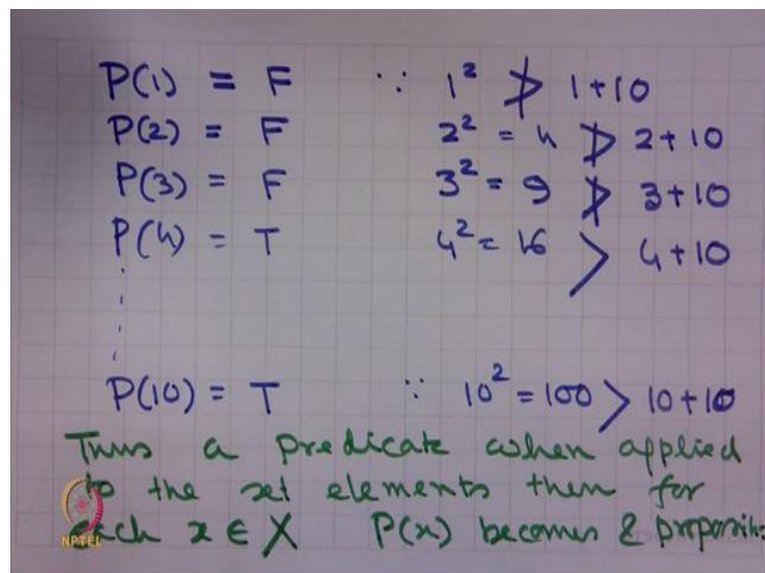 P(1) = F ∵ 1² ≯ 1+10
P(2) = F 2² = 4 ≯ 2+10
P(3) = F 3² = 9 ≯ 3+10
P(4) = T 4² = 16 > 4+10
P(10) = T ∵ 10² = 100 > 10+10
Thus a predicate when applied
to the set elements then for
each x ∈ X P(x) becomes
NPTEL